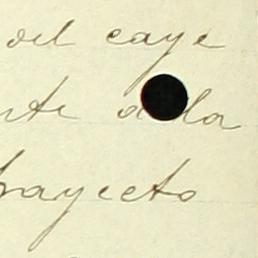 del caye
nte a la
trayecto